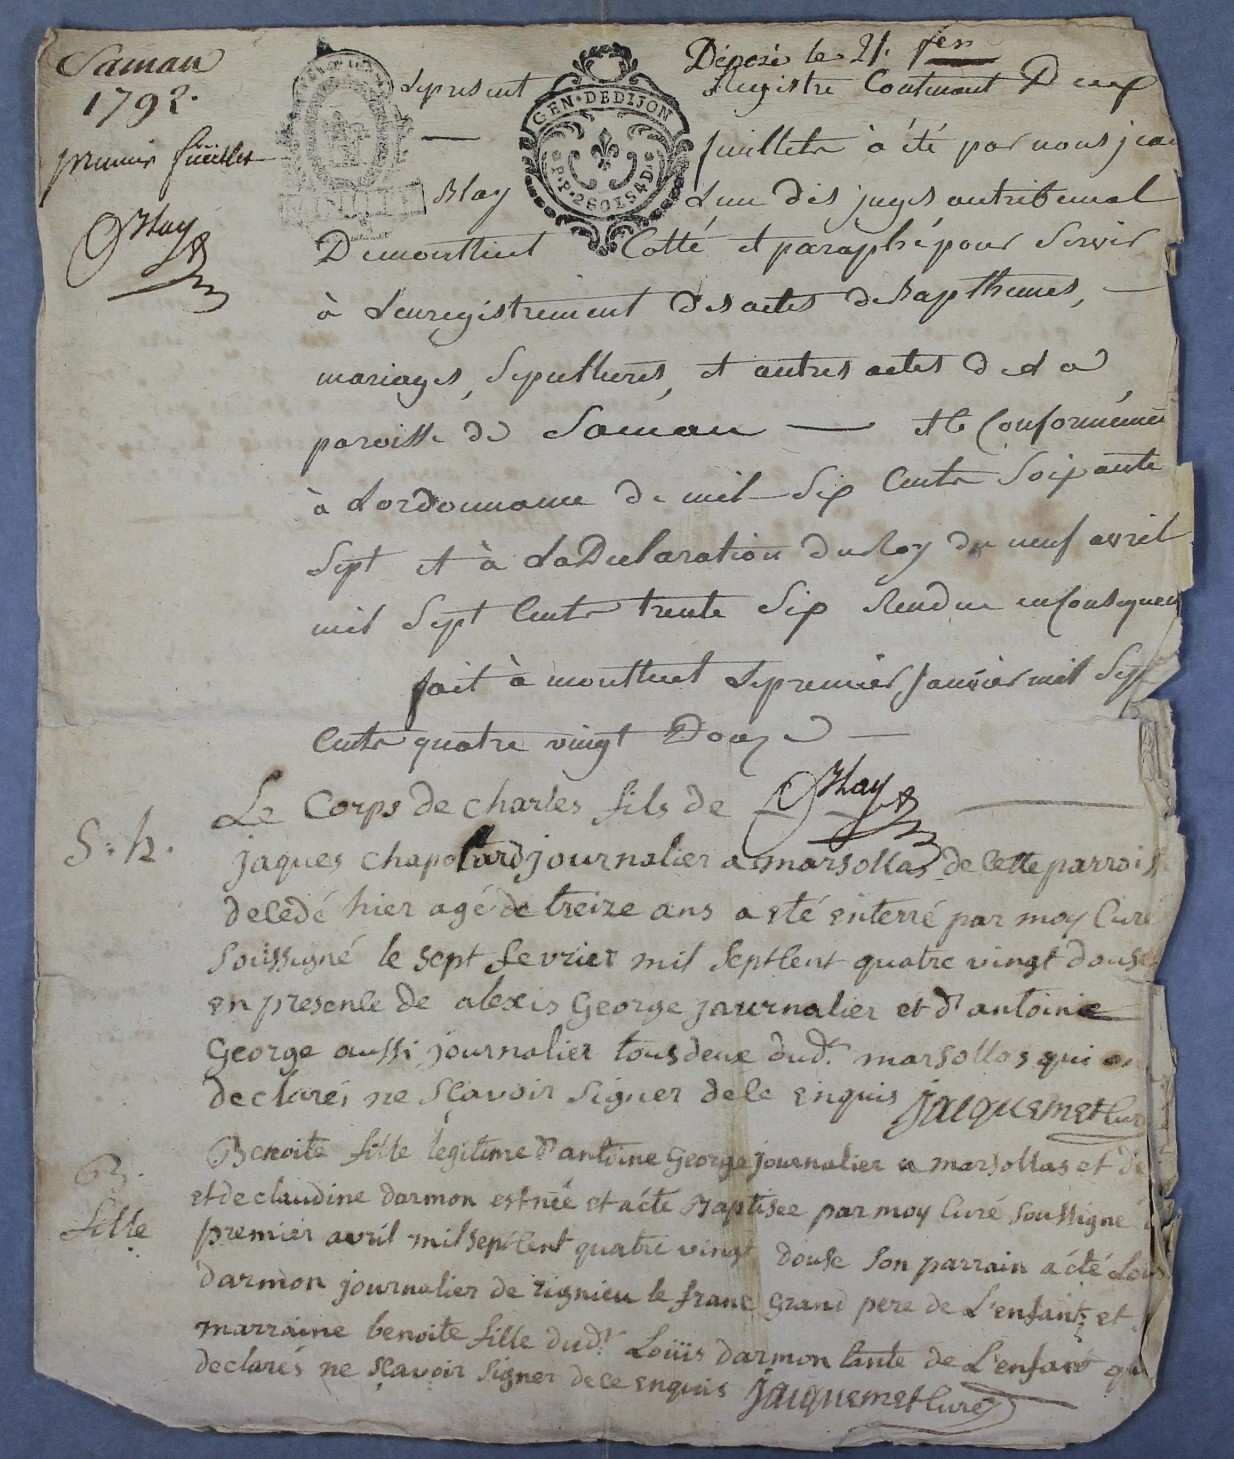 Samans
1792.
premier feüillet
Blay
Déposé le 21. jer
GEN·DEDIJON
P.P. 280 1S 4D.
Le present Registre Contenant Deux
feuillets à été par nous jean
Blay L'un des juges autribunal
Demontluel Cotté et paraphé pour Servir
à Lenregistrement des actes de Bapthemes,
mariages, Sepultures, et autres actes de La
paroisse de Samans et le Conformément
à Lordonnance de mil Six Cents Soixante
Sept et à La Declaration du Roy du neuf avril
mil Sept Cents trente Six Rendue enconsequen
fait à montluel Le premier Janvier mil Sept
Cents quatre vingt Douze
Blay
S. h.
Le Corps de charles fils de
jaques chapolard journalier a marsollas de cette parrois
decédé hier agé de treize ans a eté enterré par moy Curé
Soussigné le sept fevrier mil septcent quatre vingt douse
en presence de alexis George journalier et d'antoine
George aussi journalier tous deux dud. marsollas qui on
declarés ne sçavoir signer de ce enquis jacquemet Curé
B.
fille
Benoite fille legitime d'antoine George journalier a marsollas et de
et de claudine darmon est née et a éte Baptisée par moy Curé soussigné
premier avril mil septcent quatre vingt douse son parrain a été Louis
darmon journalier de rignieu le franc grand pere de L'enfant et
marraine benoite fille dud. Loüis darmon tante de L'enfant qui
declarés ne sçavoir signer de ce enquis jacquemet Curé